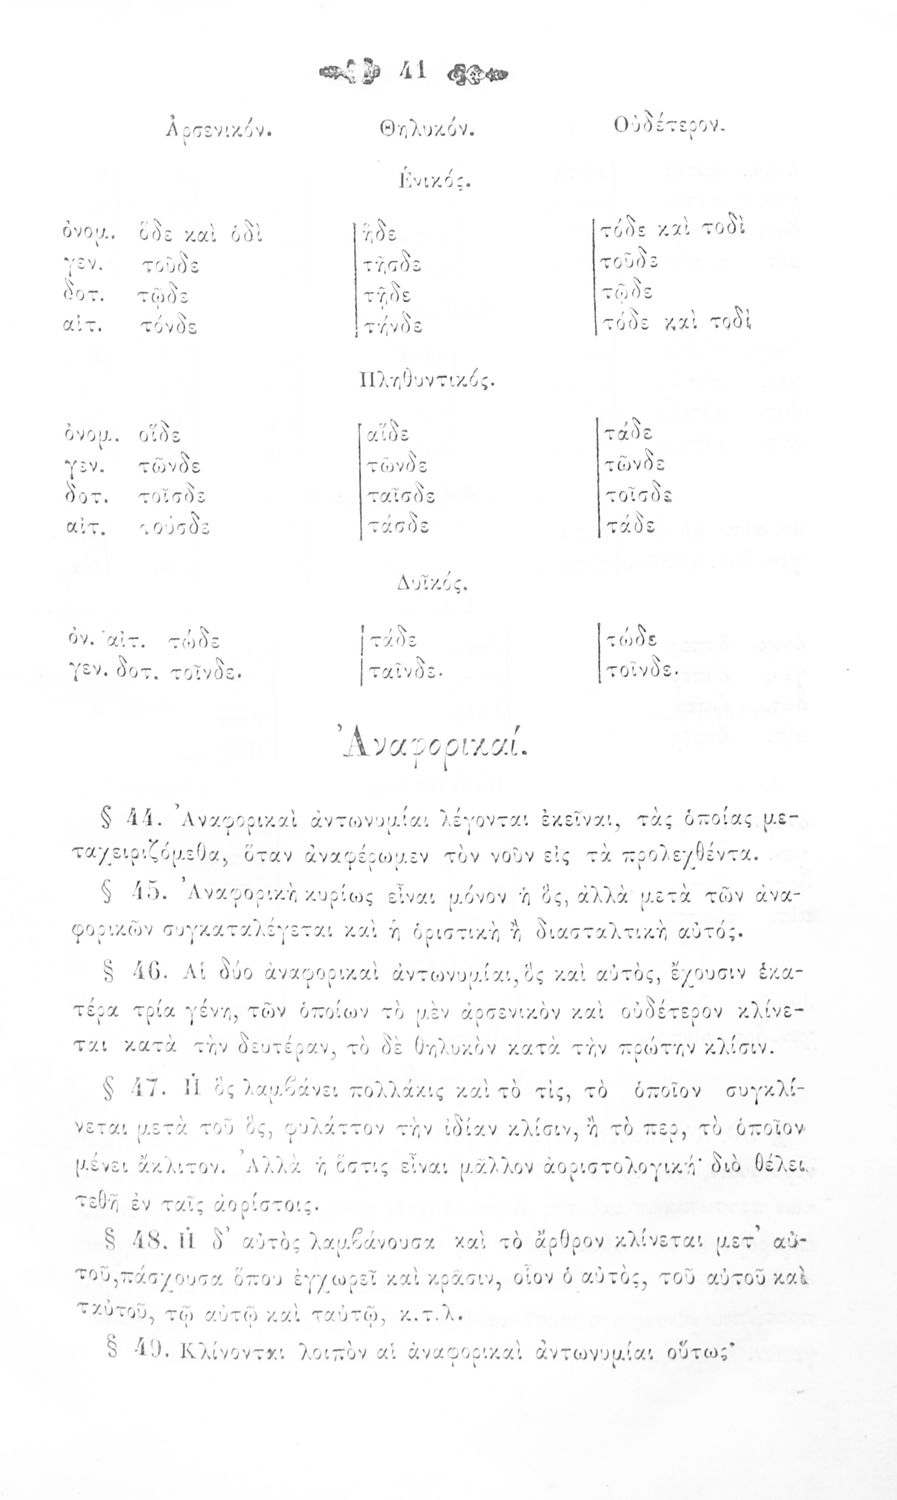 41
Ἀρσενικόν. Θηλυκόν. Οὐδέτερον.
Ἑνικός.
ὀνομ. ὅδε καὶ ὁδὶ ἥδε τόδε καὶ τοδὶ
γεν. τοῦδε τῆσδε τοῦδε
δοτ. τῷδε τῇδε τῷδε
αἰτ. τόνδε τήνδε τόδε καὶ τοδὶ
Πληθυντικός.
ὀνομ. οἵδε αἵδε τάδε
γεν. τῶνδε τῶνδε τῶνδε
δοτ. τοῖσδε ταῖσδε τοῖσδε
αἰτ. τούσδε τάσδε τάδε
Δυϊκός.
ὀν. αἰτ. τώδε τάδε τώδε
γεν. δοτ. τοῖνδε. ταῖνδε. τοῖνδε.
Ἀναφορικαί.
§ 44. Ἀναφορικαὶ ἀντωνυμίαι λέγονται ἐκεῖναι, τὰς ὁποίας με-
ταχειριζόμεθα, ὅταν ἀναφέρωμεν τὸν νοῦν εἰς τὰ προλεχθέντα.
§ 45. Ἀναφορικὴ κυρίως εἶναι μόνον ἡ ὃς, ἀλλὰ μετὰ τῶν ἀνα-
φορικῶν συγκαταλέγεται καὶ ἡ ὁριστικὴ ἢ διασταλτικὴ αὐτός.
§ 46. Αἱ δύο ἀναφορικαὶ ἀντωνυμίαι, ὃς καὶ αὐτὸς, ἔχουσιν ἑκα-
τέρα τρία γένη, τῶν ὁποίων τὸ μὲν ἀρσενικὸν καὶ οὐδέτερον κλίνε-
ται κατὰ τὴν δευτέραν, τὸ δὲ θηλυκὸν κατὰ τὴν πρώτην κλίσιν.
§ 47. Ἡ ὃς λαμβάνει πολλάκις καὶ τὸ τὶς, τὸ ὁποῖον συγκλί-
νεται μετὰ τοῦ ὃς, φυλάττον τὴν ἰδίαν κλίσιν, ἢ τὸ περ, τὸ ὁποῖον
μένει ἄκλιτον. Ἀλλὰ ἡ ὅστις εἶναι μᾶλλον ἀοριστολογική· διὸ θέλει
τεθῆ ἐν ταῖς ἀορίστοις.
§ 48. Ἡ δ' αὐτὸς λαμβάνουσα καὶ τὸ ἄρθρον κλίνεται μετ' αὐ-
τοῦ, πάσχουσα ὅπου ἐγχωρεῖ καὶ κρᾶσιν, οἷον ὁ αὐτὸς, τοῦ αὐτοῦ καὶ
ταὐτοῦ, τῷ αὐτῷ καὶ ταὐτῷ, κ.τ.λ.
§ 49. Κλίνονται λοιπὸν αἱ ἀναφορικαὶ ἀντωνυμίαι οὕτως·